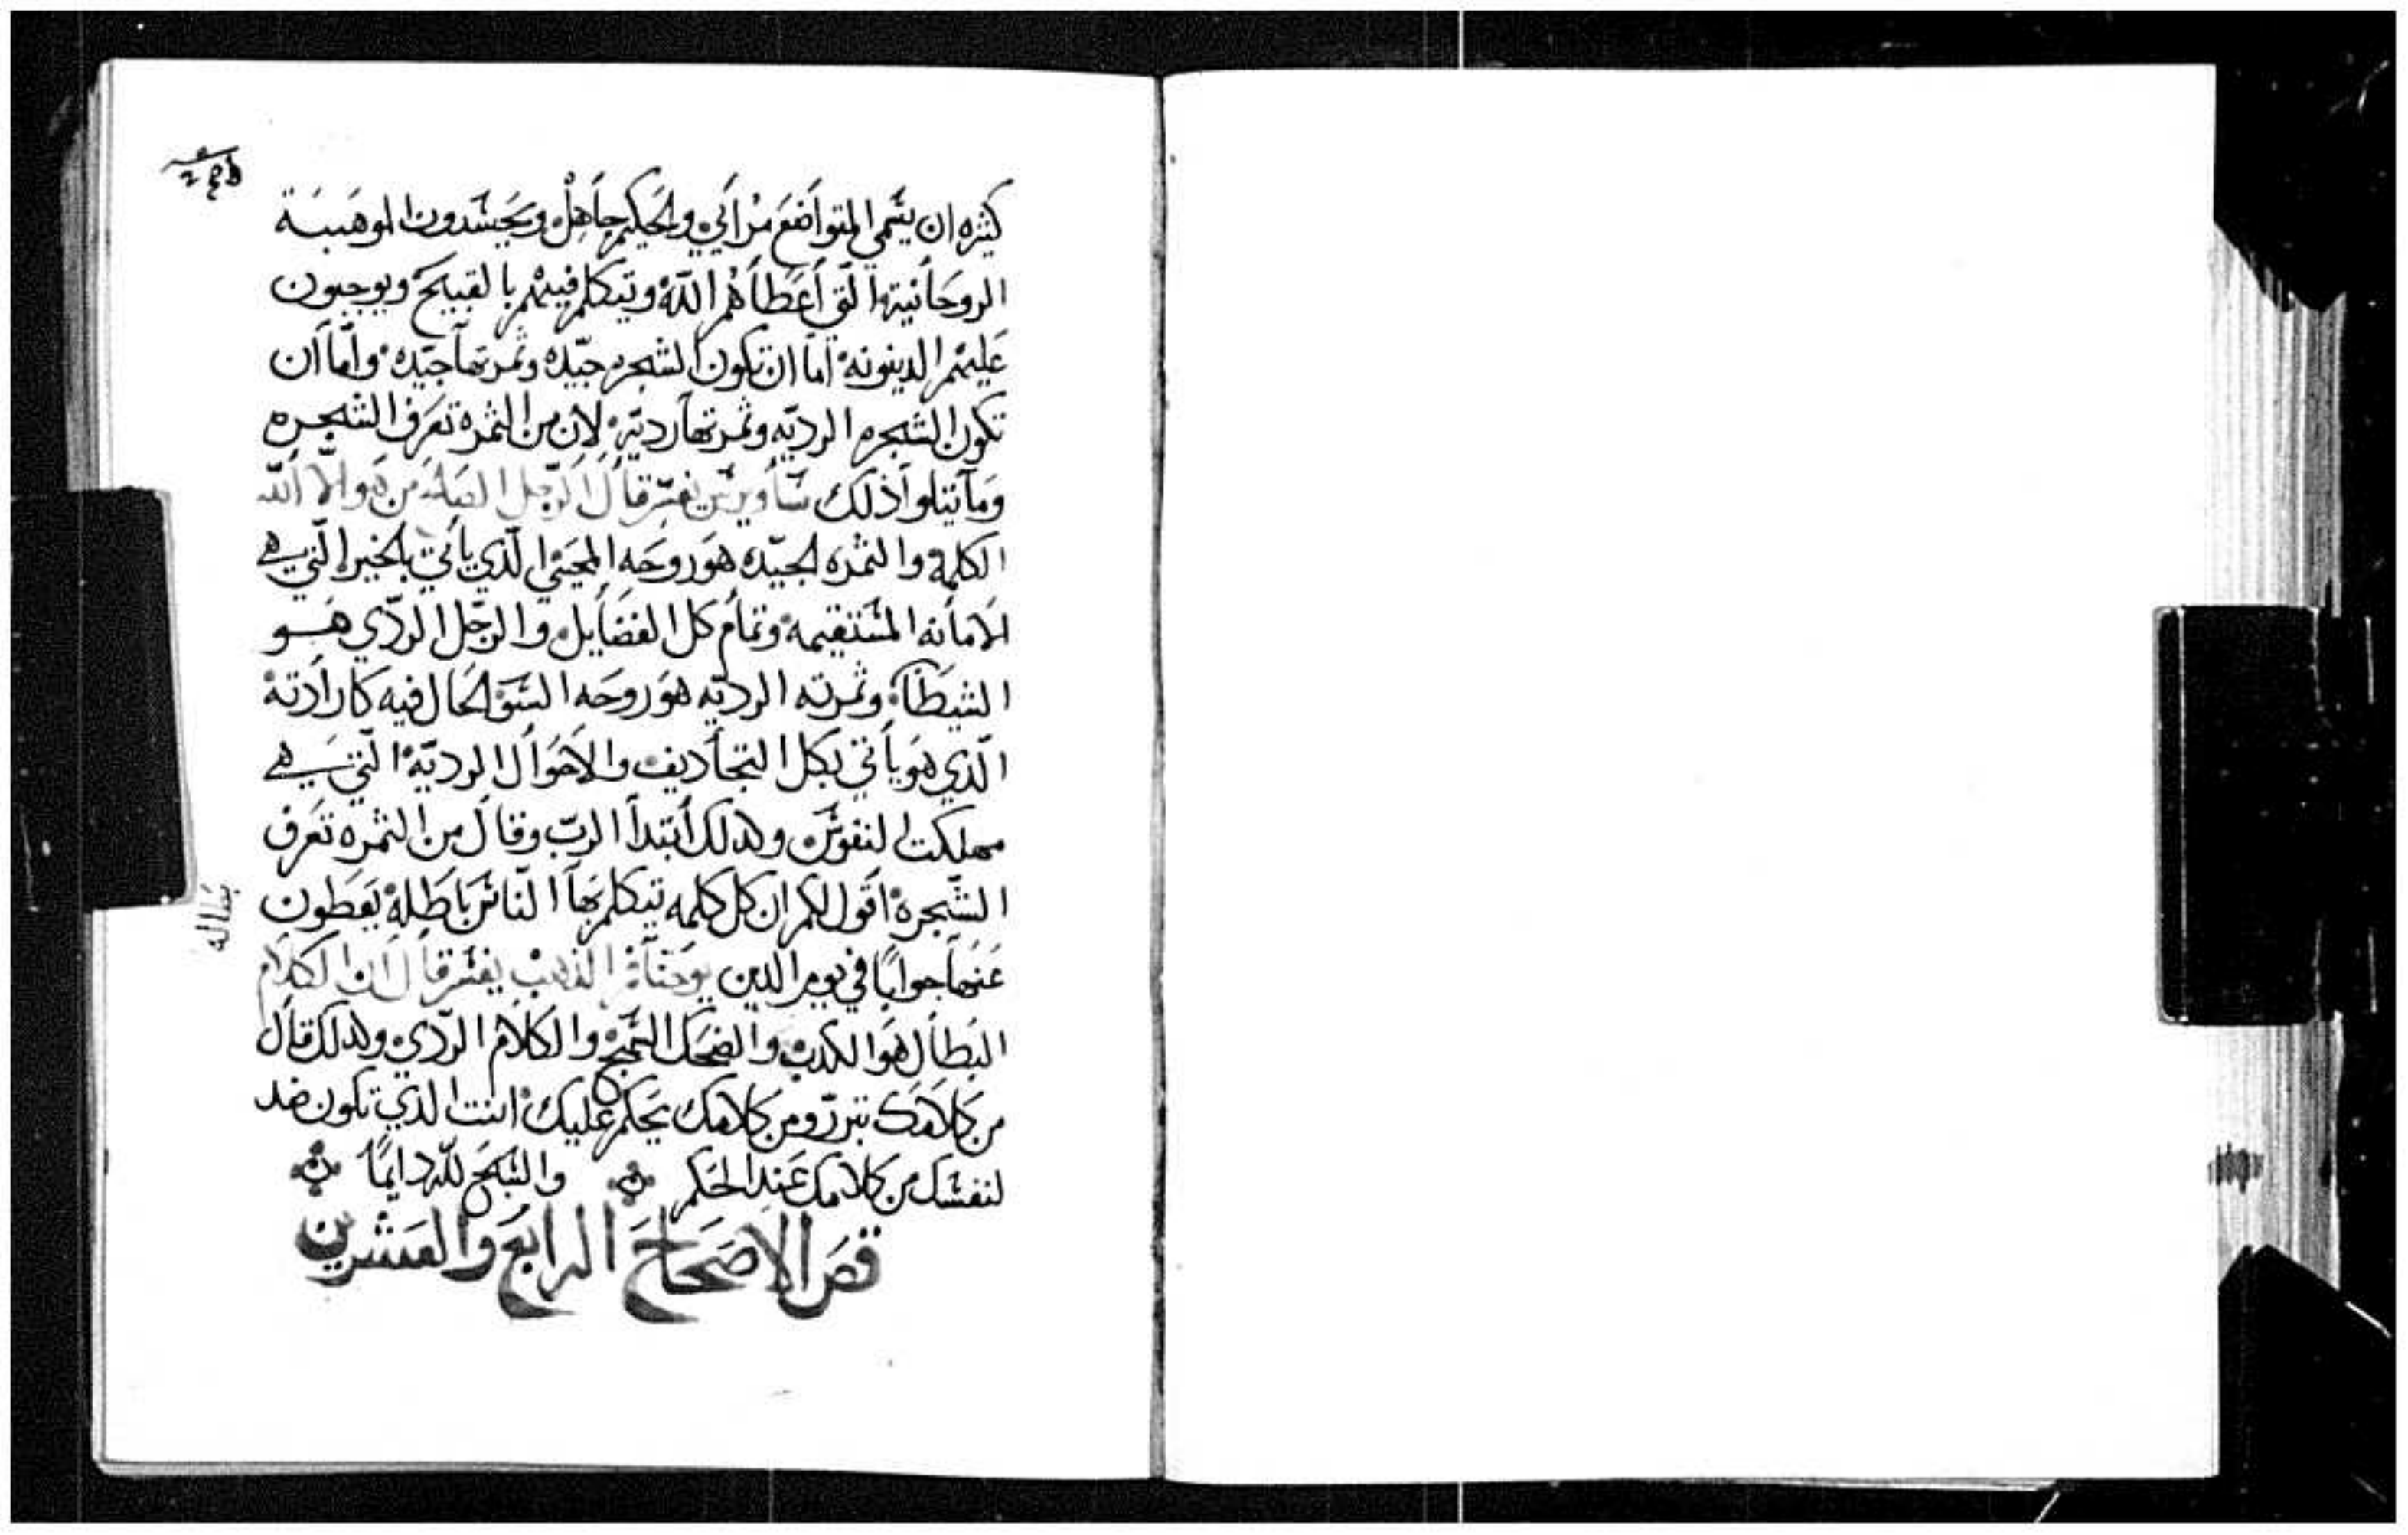 كثيره ان يسمي المتواضع مرائي والحكيم جاهل ويحسدون الموهبة
الروحانية التي أعطاهم الله ويتكلم فيهم بالقبيح ويوجبون
عليهم الدينونه اما ان تكون الشجره جيّده وثمرتها جيّده واما ان
تكون الشجره الرديّه وثمرتها رديّه لان من الثمره تعرف الشجره
وما يتلوا ذلك ساويرس يفسّر قال الرّجل الصالح من هو الّا الله
الكلمة والثمره الجيّده هو روحه المحيي الّذي يأتي بالخير الّتي هي
الامانه المستقيمه وتمام كل الفضايل والرجّل الردّي هو
الشيطان وثمرته الرديّه هو روحه السّو الحال فيه كارادته
الّذي هو يأتي بكل التجاديف والاحوال الرديّة الّتي هي
مهلكت النفوس ولدلك أبتدأ الربّ وقال من الثمره تعرف
الشّجرة اقول لكم ان كل كلمه تتكلم بها النّاس باطلة يعطون
عنها جوابًا في يوم الدين يوحنا فم الذهب يفسّر قال ان الكلام
البطال هو الكدب والضحك السّمج والكلام الردّي ولدلك قال
من كلامك تتبرّر ومن كلامك يحكم عليك انت الذي تكون ضد
لنفسك من كلامك عند الحكم والسّبح للّه دايمًا
قص الاصحاح الرابع والعشرين